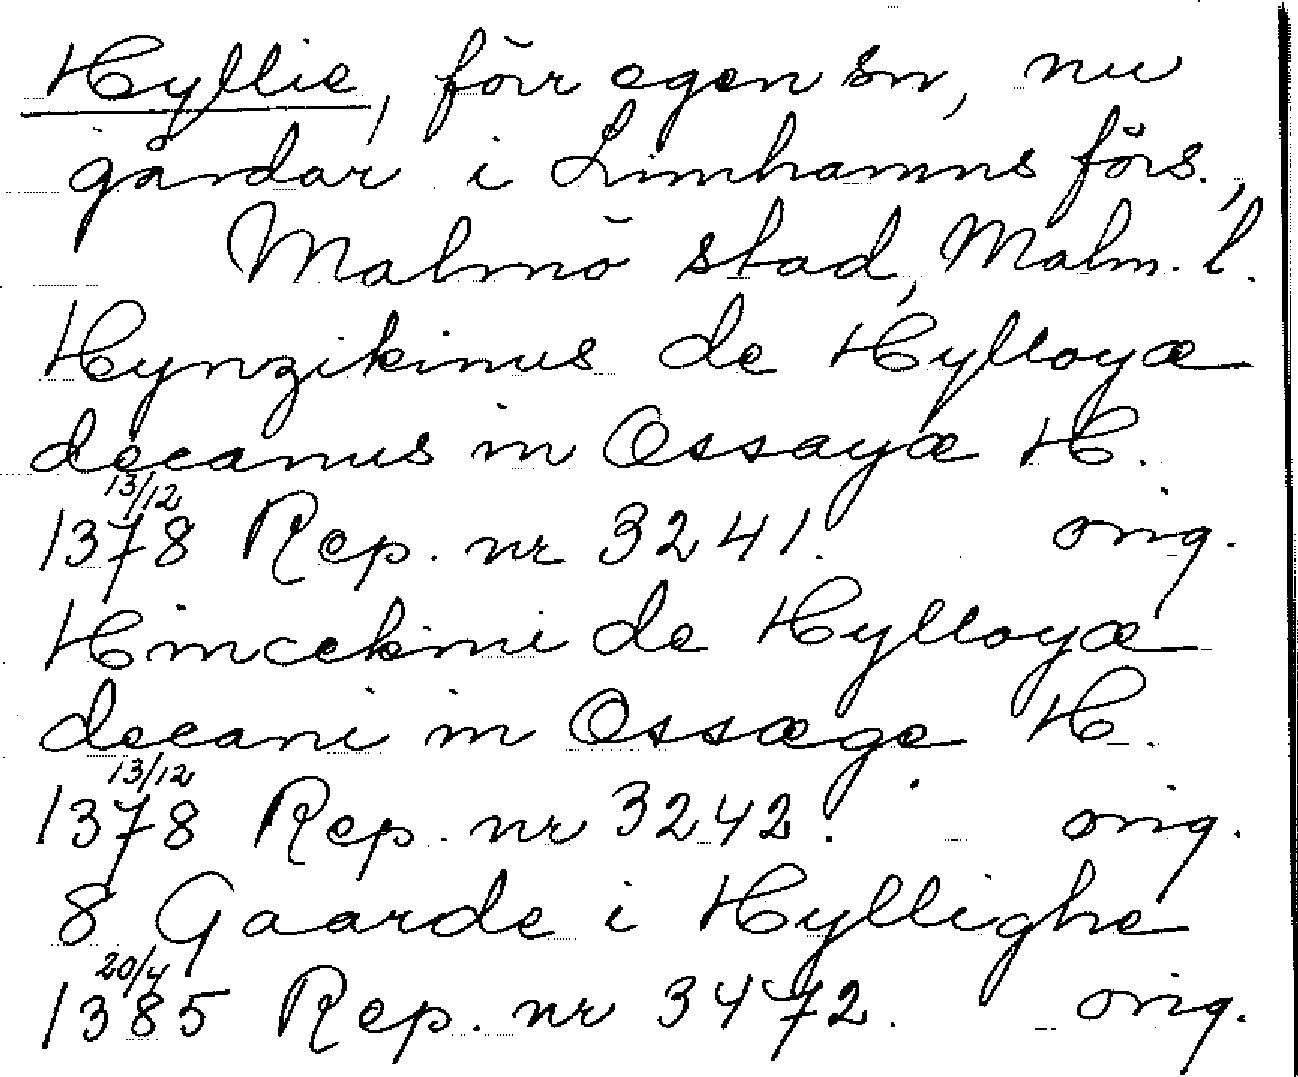 Hyllie, förr egen sn, nu
gårdar i Limhamns förs.,
Malmö stad, Malm. l.
Hynzikinus de Hylloyæ
decanus in Ossayæ H.
13/12
1378 Rep. nr 3241. orig.
Hincekini de Hylloyæ
decani in Ossæge H.
13/12
1378 Rep. nr 3242. orig.
8 Gaarde i Hyllighe
20/4
1385 Rep. nr 3472. orig.